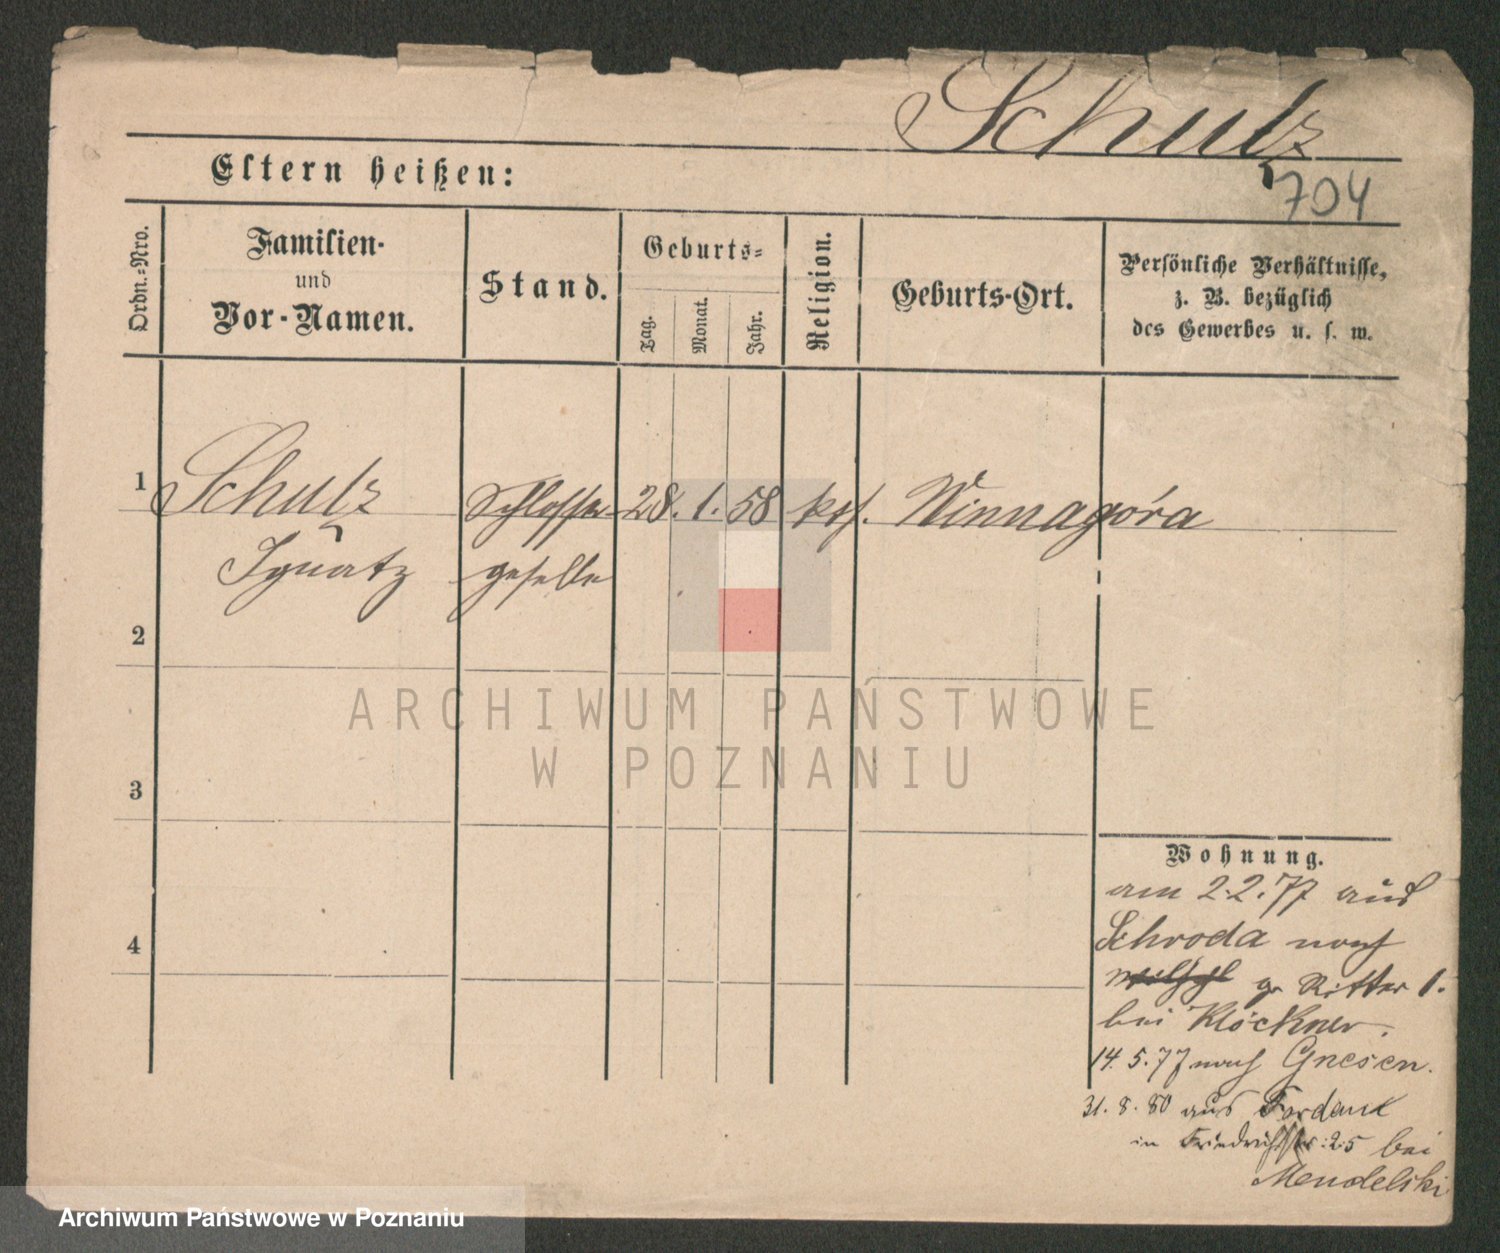 Schulz
704
Eltern heißen:
Ordn.-Nro.
Familien-
und
Vor-Namen.
Stand.
Geburts-
Tag.
Monat.
Jahr.
Religion.
Geburts-Ort.
Persönliche Verhältnisse,
z. B. bezüglich
des Gewerbes u. s. w.
1 Schulz Schlosser- 28. 1. 58 kath. Winnagóra
Ignatz geselle
2
3
4
ARCHIWUM PAŃSTWOWE
W POZNANIU
Wohnung.
am 2.2.77 aus
Schroda nach
gr Ritter 1.
bei Klöckner.
14. 5. 77 nach Gnesen.
31. 8. 80 aus Fordon
in Friedrichstr: 25 bei
Mendelski
Archiwum Państwowe w Poznaniu